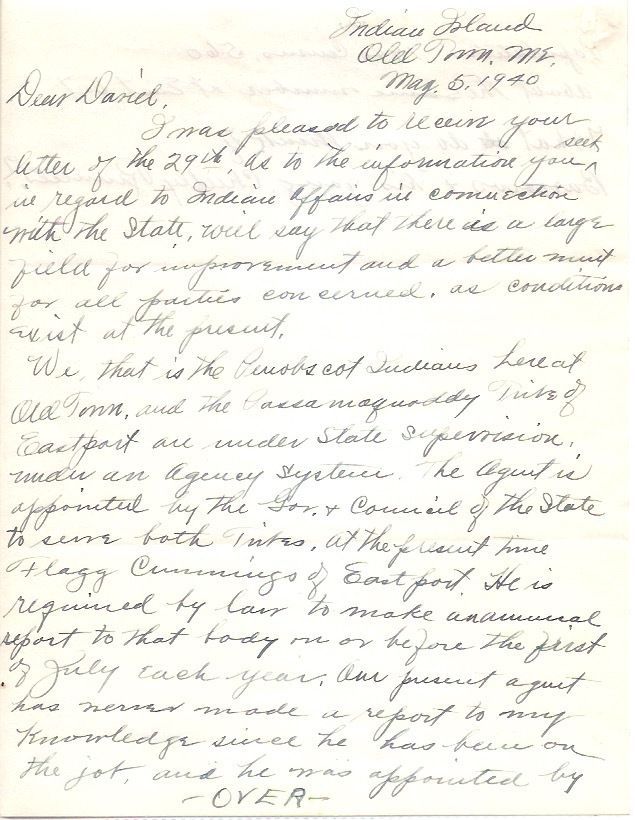 Indian Island
Old Town, Me.
May. 5, 1940
Dear Daniel,
I was pleased to receive your
letter of the 29th, as to the information you seek
in regard to Indian Affairs in connection
with the State, will say that there is a large
field for improvement and a better
for all parties concerned. as conditions
exist at the present.
We, that is the Penobscot Indians here at
Old Town, and the Passamaquoddy Tribe of
Eastport are under State Supervision,
under an Agency System. The Agent is
appointed by the Gov. & Council of the State
to serve both Tribes. at the present time
Flagg Cummings of Eastport. He is
required by law to make an annual
report to that body on or before the first
of July each year. Our present agent
has never made a report to my
Knowledge since he has been on
the job, and he was appointed by
- OVER -